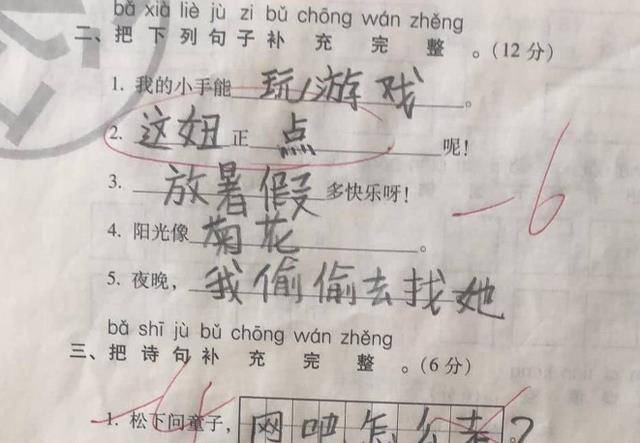 bǎ xià liè jù zi bǔ chōng wán zhěng
二、把下列句子补充完整。(12分)
1. 我的小手能玩游戏。
2. 这妞正点呢!
3. 放暑假多快乐呀!
-6
4. 阳光像菊花。
5. 夜晚，我偷偷去找她
bǎ shī jù bǔ chōng wán zhěng
三、把诗句补充完整。(6分)
1. 松下问童子，网吧怎么走?